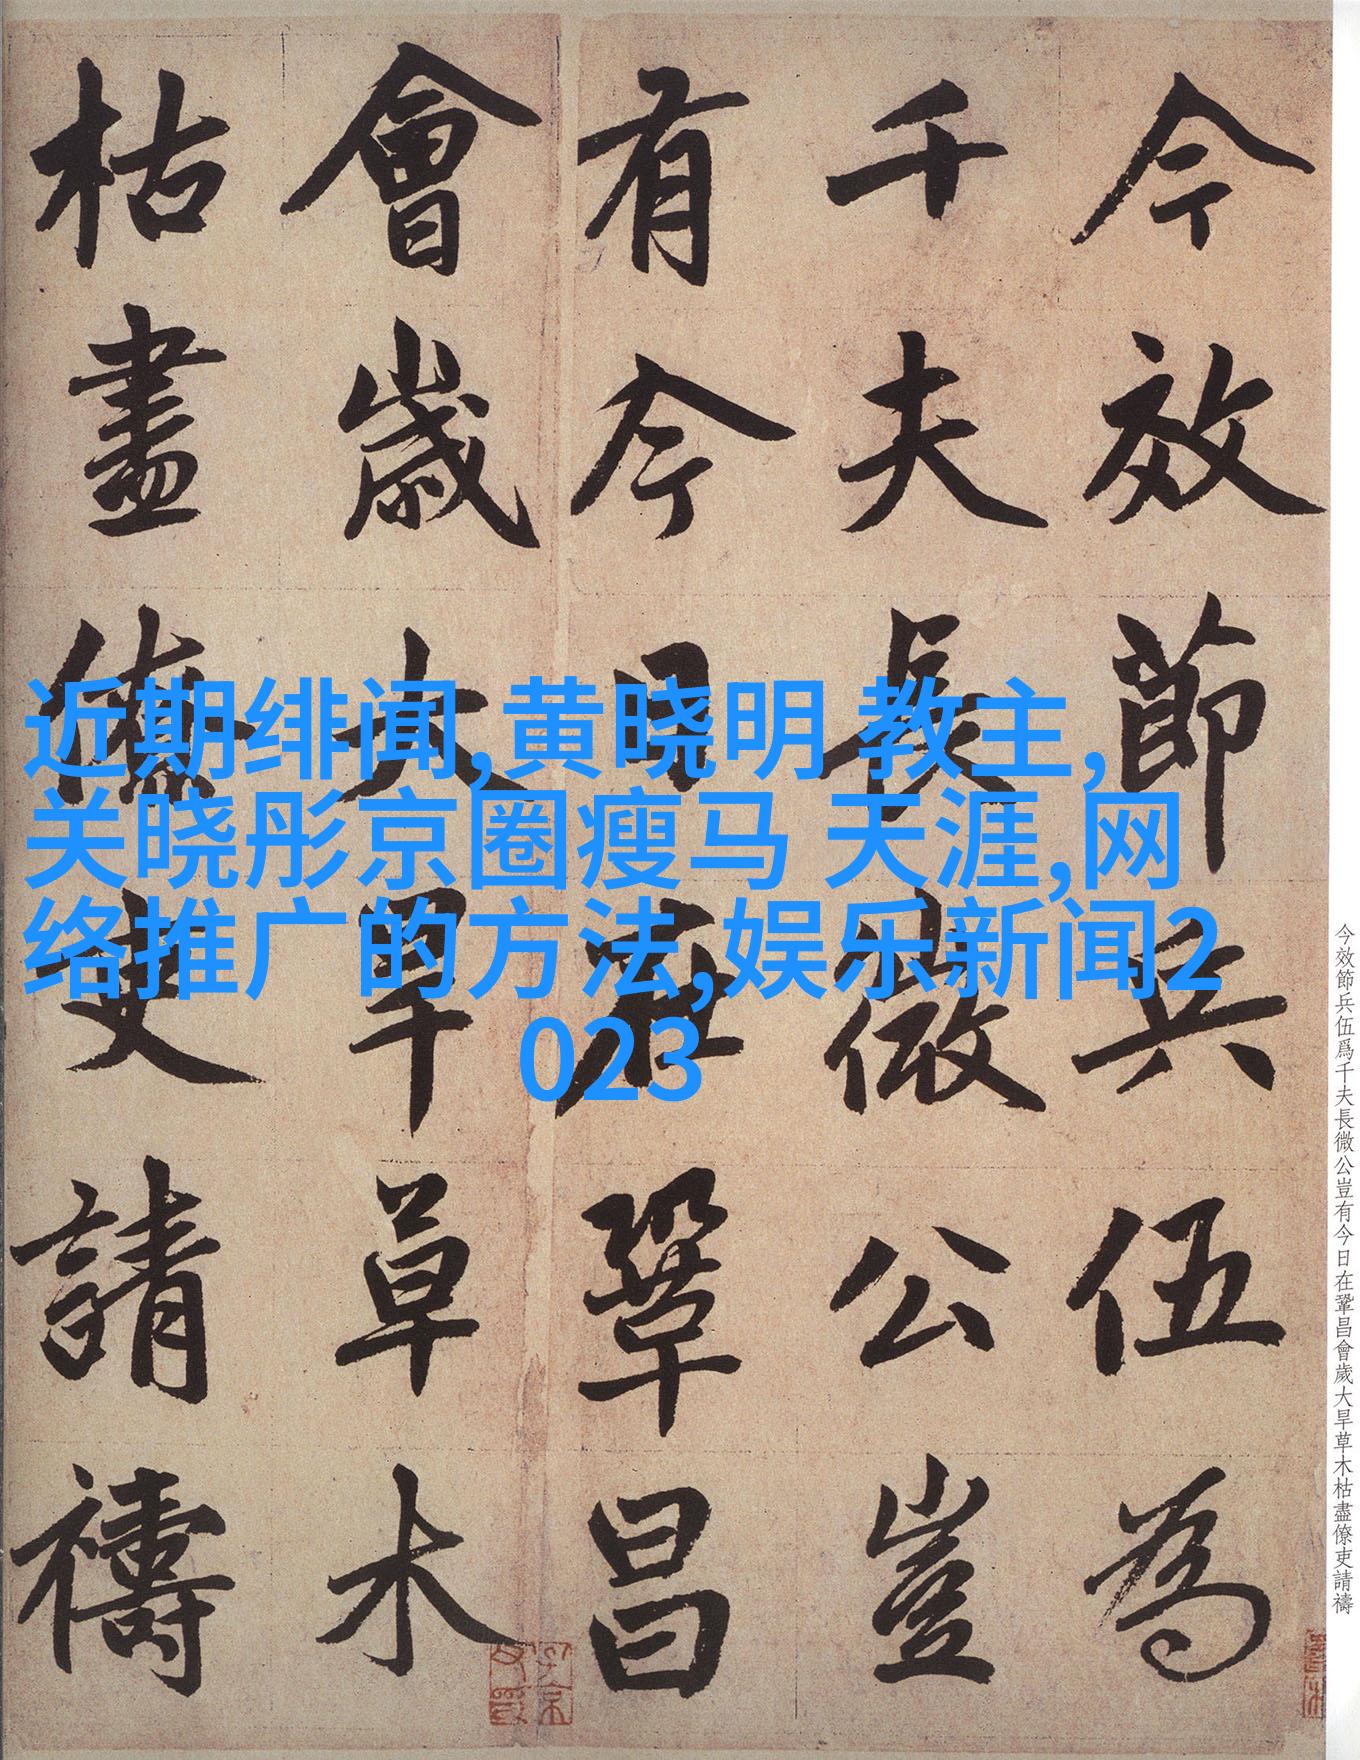 今效節兵伍爲千夫長微公豈有今日在鞏昌會歲大旱草木枯盡僚吏請禱
今效節兵伍為
千夫長微公豈
有今日在鞏昌
會歲大旱草木
枯盡僚吏請禱
近期绯闻,黄晓明 教主,
关晓彤京圈瘦马 天涯,网
络推广的方法,娱乐新闻2
023